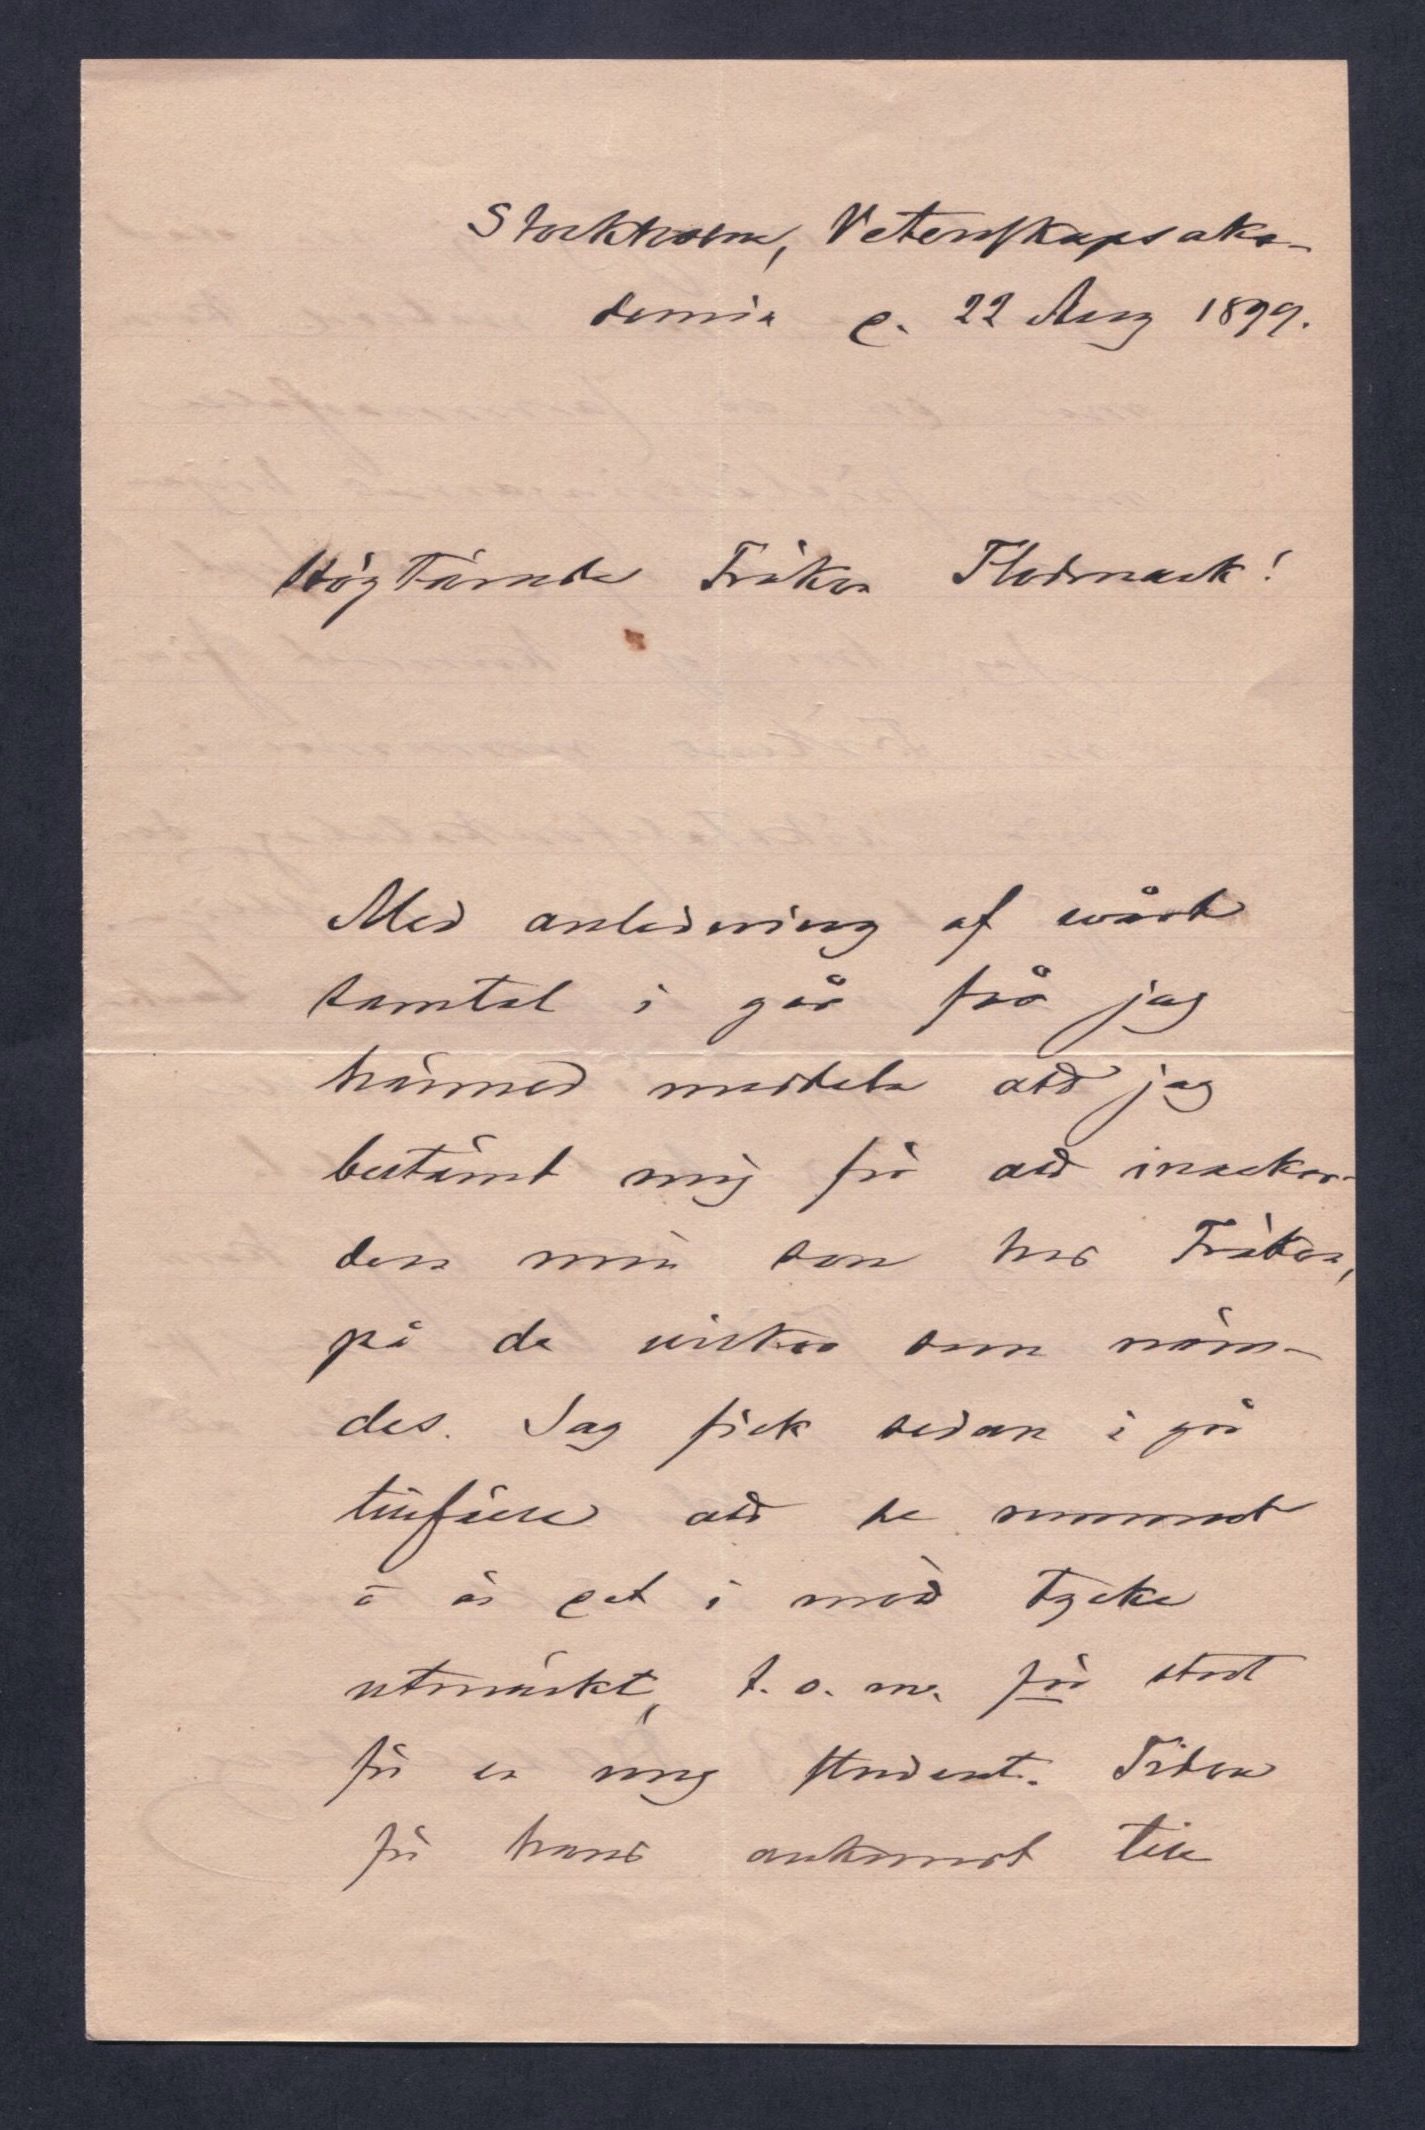 Stockholm, Vetenskapsaka-
demin d. 22 Aug 1899.
Högtärade Fröken Flodmark!
Med anledning af vårt
samtal i går får jag
härmed meddela att jag
bestämt mig för att inackor-
dera min son hos Fröken,
på de vilkor som näm-
des. Jag fick sedan i går
tillfälle att se rummet
o är det i mitt tycke
utmärkt, t. o. m. för stort
för en ung student. Tiden
för hans ankomst till